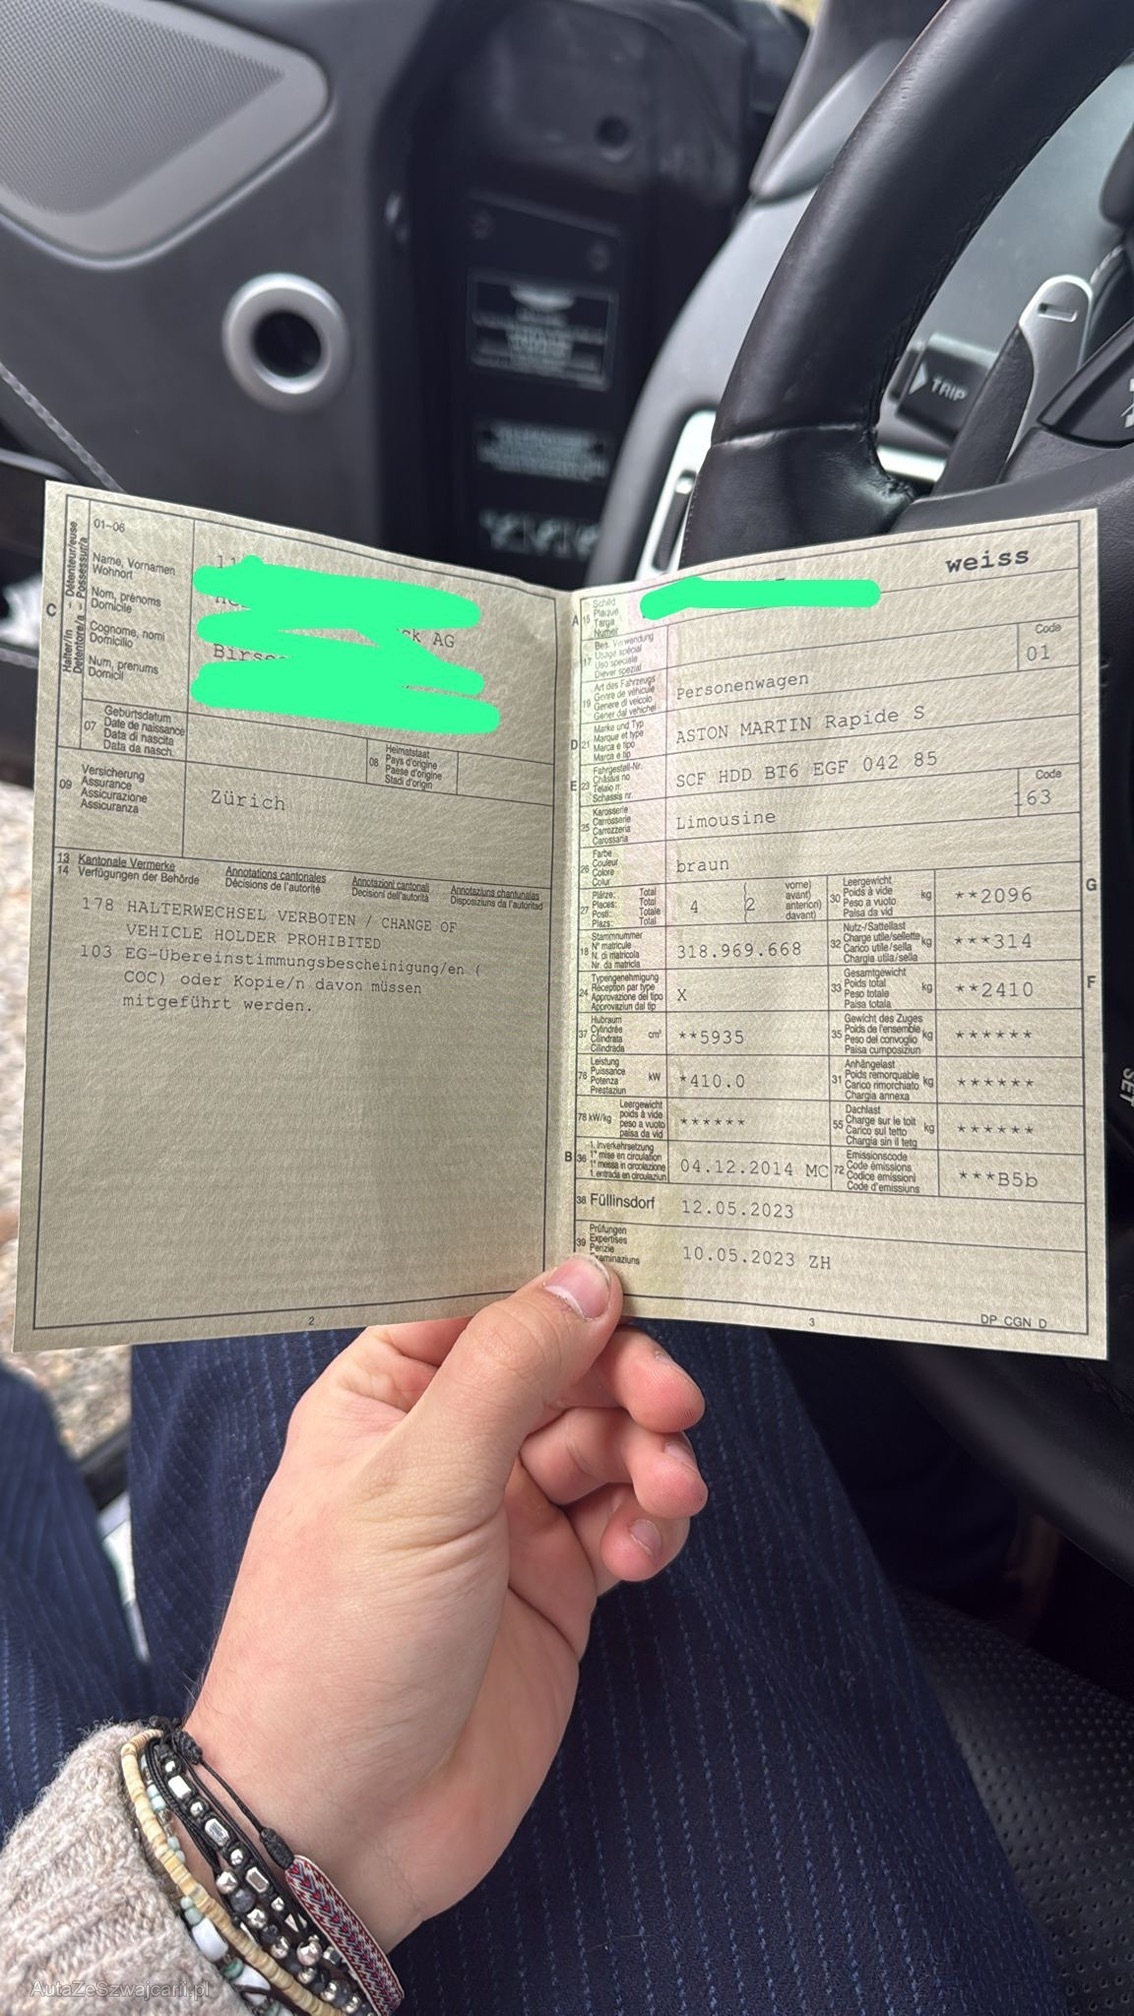 TRIP
SET
C
Halter/in - Détenteur/euse
Detentore/a - Possessur/a
01-06
Name, Vornamen
Wohnort
Nom, prénoms
Domicile
Cognome, nomi
Domicilio
Num, prenums
Domicil
AG
07
Geburtsdatum
Date de naissance
Data di nascita
Data da nasch.
08
Heimatstaat
Pays d'origine
Paese d'origine
Stadi d'origin
09
Versicherung
Assurance
Assicurazione
Assicuranza
Zürich
13 Kantonale Vermerke
14 Verfügungen der Behörde
Annotations cantonales
Décisions de l'autorité
Annotazioni cantonali
Decisioni dell'autorità
Annotaziuns chantunalas
Disposiziuns da l'autoritad
178 HALTERWECHSEL VERBOTEN / CHANGE OF
VEHICLE HOLDER PROHIBITED
103 EG-Übereinstimmungsbescheinigung/en (
COC) oder Kopie/n davon müssen
mitgeführt werden.
2
weiss
A 15
Schild
Plaque
Targa
Numer
17
Bes. Verwendung
Usage spécial
Uso speciale
Diever spezial
Code
01
19
Art des Fahrzeugs
Genre de véhicule
Genere di veicolo
Gener dal vehichel
Personenwagen
D 21
Marke und Typ
Marque et type
Marca e tipo
Marca e tip
ASTON MARTIN Rapide S
E 23
Fahrgestell-Nr.
Châssis no
Telaio n.
Schassis nr.
SCF HDD BT6 EGF 042 85
25
Karosserie
Carrosserie
Carrozzeria
Carossaria
Limousine
Code
163
26
Farbe
Couleur
Colore
Colur
braun
27
Plätze: Total
Places: Total
Posti: Totale
Plazs: Total
4
(2
vorne)
avant)
anteriori)
davant)
G
30
Leergewicht
Poids à vide
Peso a vuoto
Paisa da vid
kg
**2096
18
Stammnummer
N° matricule
N. di matricola
Nr. da matricla
318.969.668
32
Nutz-/Sattellast
Charge utile/sellette
Carico utile/sella
Chargia utila/sella
kg
***314
24
Typengenehmigung
Réception par type
Approvazione del tipo
Approvaziun dal tip
X
33
Gesamtgewicht
Poids total
Peso totale
Paisa totala
kg
**2410
F
37
Hubraum
Cylindrée
Cilindrata
Cilindrada
cm³
**5935
35
Gewicht des Zuges
Poids de l'ensemble
Peso del convoglio
Paisa cumposiziun
kg
******
76
Leistung
Puissance
Potenza
Prestaziun
kW
*410.0
31
Anhängelast
Poids remorquable
Carico rimorchiato
Chargia annexa
kg
******
78 kW/kg
Leergewicht
poids à vide
peso a vuoto
paisa da vid
******
55
Dachlast
Charge sur le toit
Carico sul tetto
Chargia sin il tetg
kg
******
B 36
1. Inverkehrsetzung
1re mise en circulation
1a messa in circolazione
1. entrada en circulaziun
04.12.2014 MC
72
Emissionscode
Code émissions
Codice emissioni
Code d'emissiuns
***B5b
38 Füllinsdorf
12.05.2023
39
Prüfungen
Expertises
Perizie
Examinaziuns
10.05.2023 ZH
3
DP CGN D
AutaZeSzwajcarii.pl